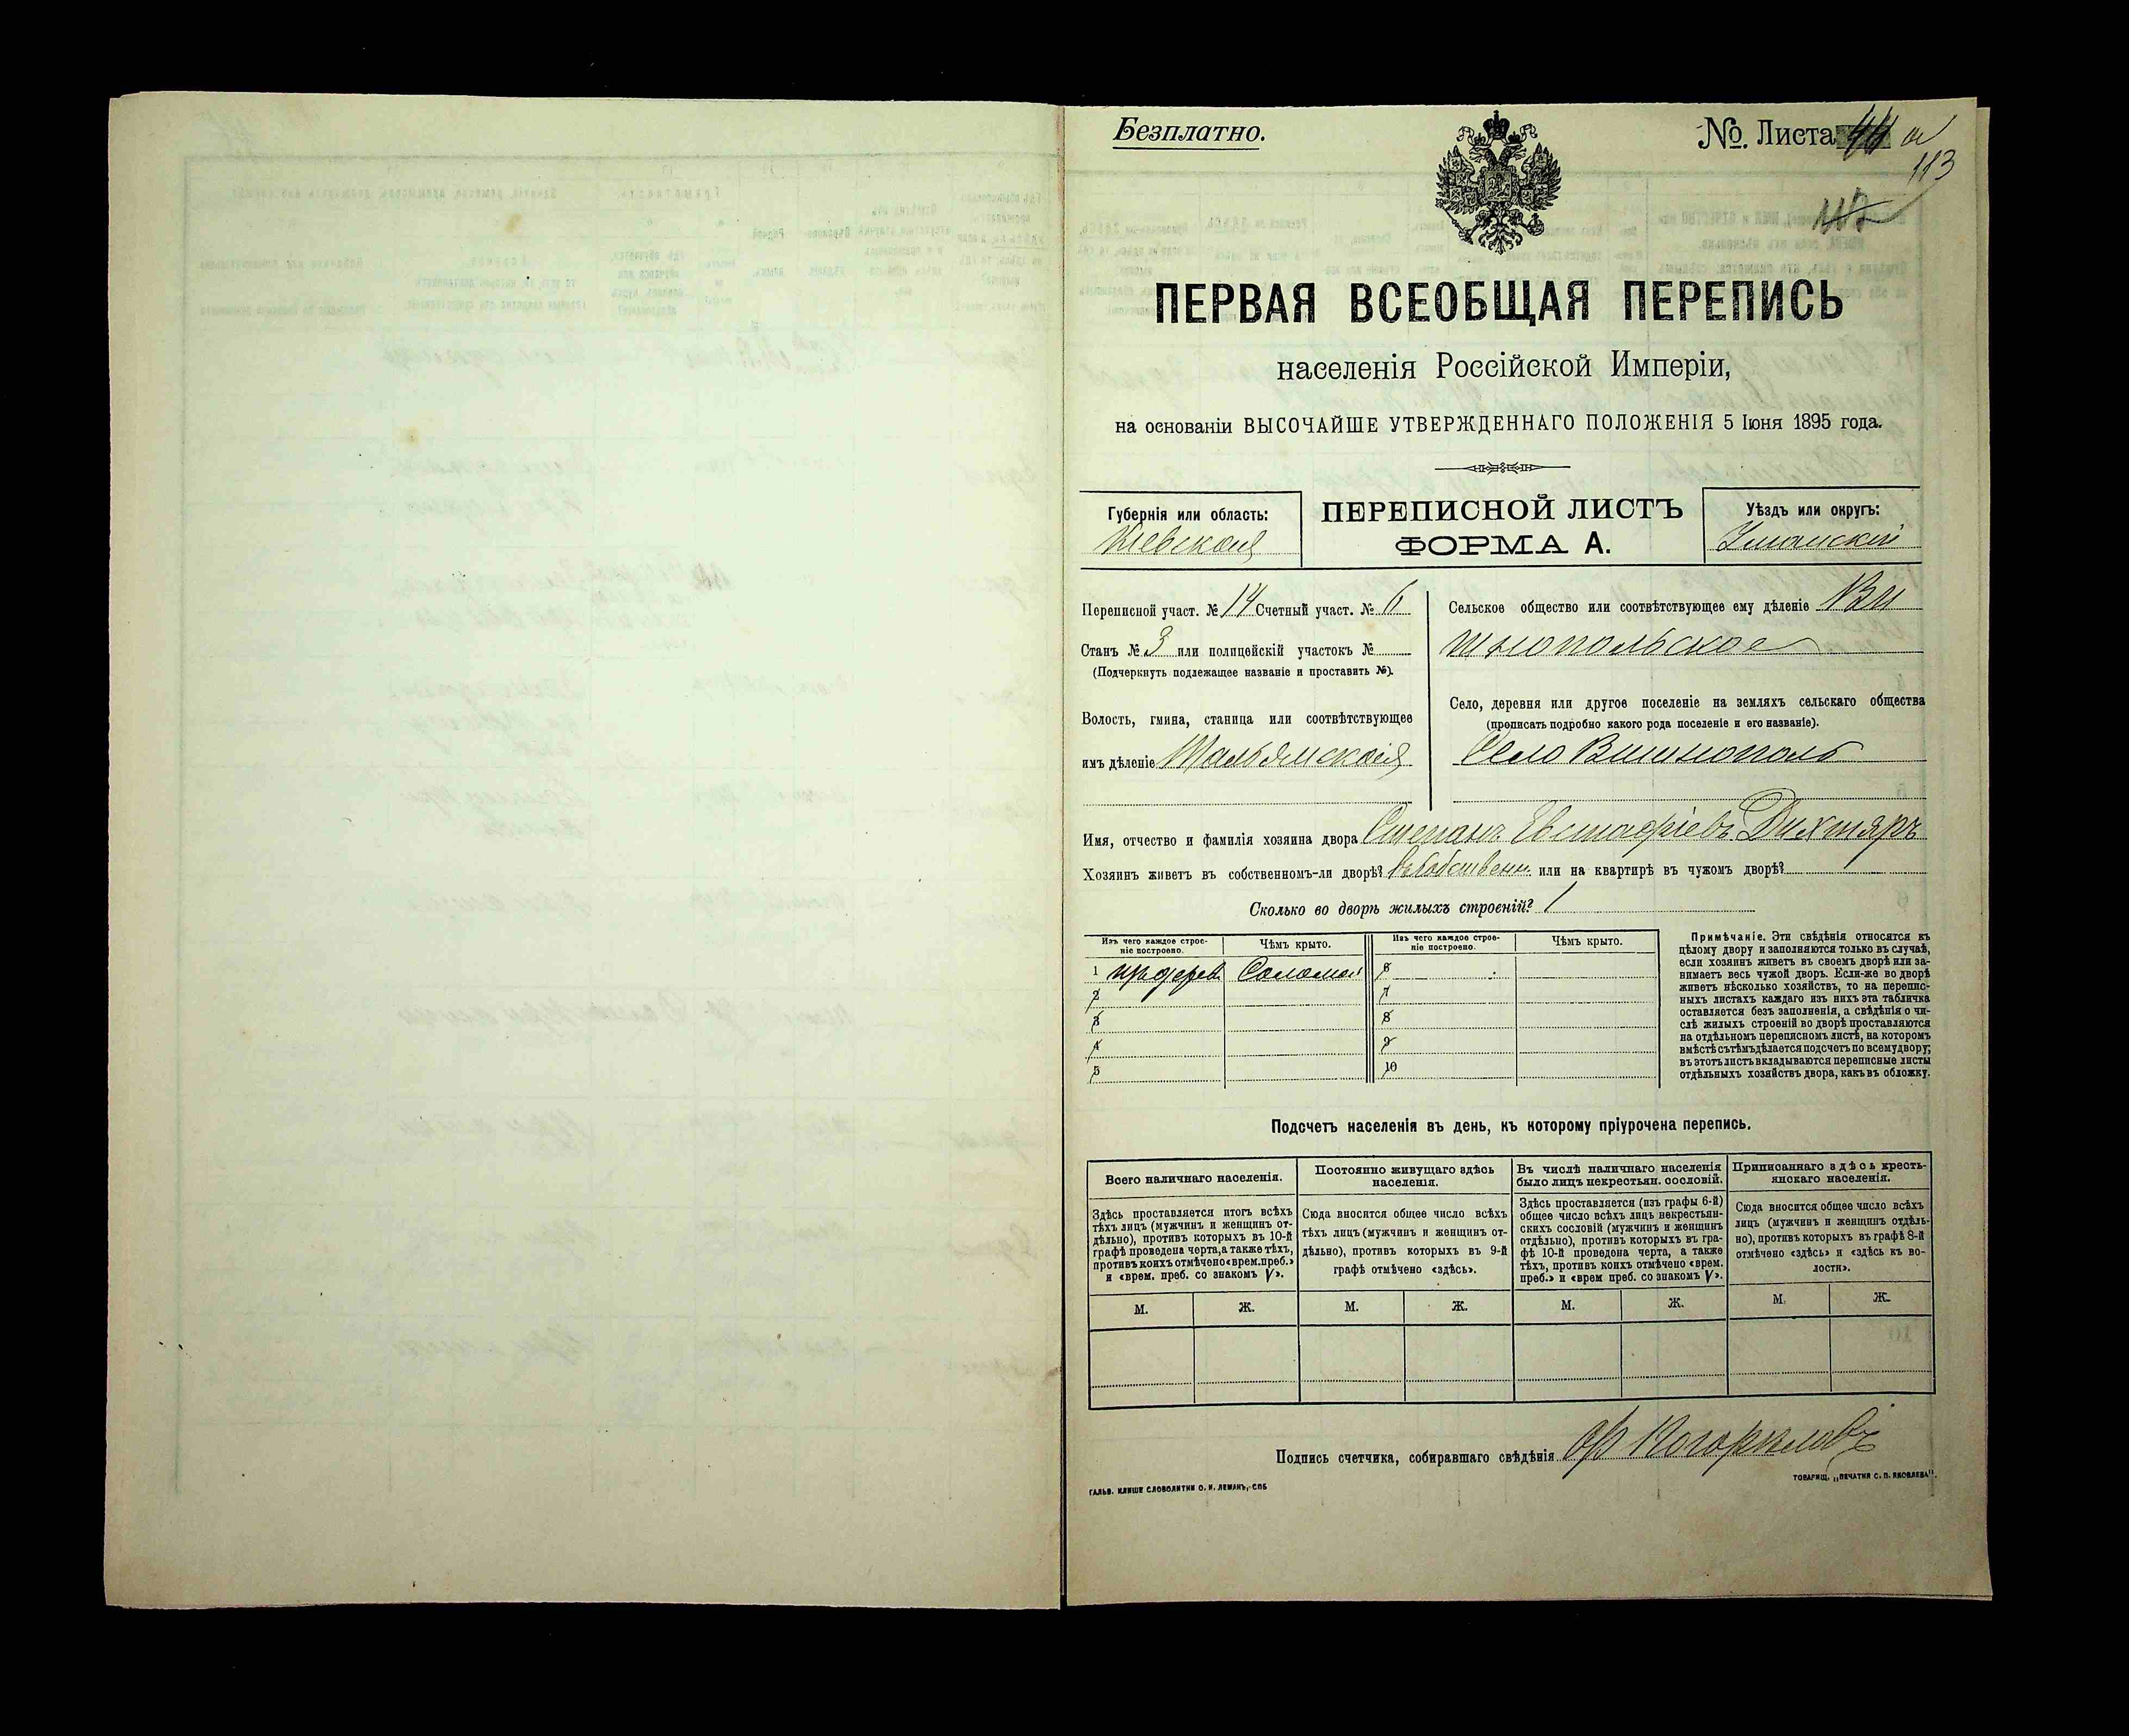 Безплатно.
№. Листа 44 а
113
ПЕРВАЯ ВСЕОБЩАЯ ПЕРЕПИСЬ
населенія Россійской Имперіи,
на основаніи ВЫСОЧАЙШЕ УТВЕРЖДЕННАГО ПОЛОЖЕНІЯ 5 Іюня 1895 года.
Губернія или область:
Кіевская
ПЕРЕПИСНОЙ ЛИСТЪ
ФОРМА А.
Уѣздъ или округъ:
Уманскій
Переписной участ. № 14 Счетный участ. № 6
Станъ № 3 или полицейскій участокъ №
(Подчеркнуть подлежащее названіе и проставить №).
Волость, гмина, станица или соотвѣтствующее
имъ дѣленіе Тальянская
Сельское общество или соотвѣтствующее ему дѣленіе Ви
шнопольское
Село, деревня или другое поселеніе на земляхъ сельскаго общества
(прописать подробно какого рода поселеніе и его названіе).
Село Вишнополь
Имя, отчество и фамилія хозяина двора Степанъ Евстафіевъ Дихтяръ
Хозяинъ живетъ въ собственномъ-ли дворѣ? въ собственн. или на квартирѣ въ чужомъ дворѣ?
Сколько во дворѣ жилыхъ строеній? 1
Изъ чего каждое строе-
ніе построено.
Чѣмъ крыто.
Изъ чего каждое строе-
ніе построено.
Чѣмъ крыто.
1 Соломой 6
2 7
3 8
4 9
5 10
Примѣчаніе. Эти свѣдѣнія относятся къ
цѣлому двору и заполняются только въ случаѣ,
если хозяинъ живетъ въ своемъ дворѣ или за-
нимаетъ весь чужой дворъ. Если-же во дворѣ
живетъ нѣсколько хозяйствъ, то на перепис-
ныхъ листахъ каждаго изъ нихъ эта табличка
оставляется безъ заполненія, а свѣдѣнія о чи-
слѣ жилыхъ строеній во дворѣ проставляются
на отдѣльномъ переписномъ листѣ, на которомъ
вмѣстѣ съ тѣмъ дѣлается подсчетъ по всему двору;
въ этотъ листъ вкладываются переписные листы
отдѣльныхъ хозяйствъ двора, какъ въ обложку.
Подсчетъ населенія въ день, къ которому пріурочена перепись.
Всего наличнаго населенія.
Здѣсь проставляется итогъ всѣхъ
тѣхъ лицъ (мужчинъ и женщинъ от-
дѣльно), противъ которыхъ въ 10-й
графѣ проведена черта, а также тѣхъ,
противъ коихъ отмѣчено «врем. преб.»
и «врем. преб. со знакомъ V».
Постоянно живущаго здѣсь
населенія.
Сюда вносится общее число всѣхъ
тѣхъ лицъ (мужчинъ и женщинъ от-
дѣльно), противъ которыхъ въ 9-й
графѣ отмѣчено «здѣсь».
Въ числѣ наличнаго населенія
было лицъ некрестьян. сословій.
Здѣсь проставляется (изъ графы 6-й)
общее число всѣхъ лицъ некрестьян-
скихъ сословій (мужчинъ и женщинъ
отдѣльно), противъ которыхъ въ гра-
фѣ 10-й проведена черта, а также
тѣхъ, противъ коихъ отмѣчено «врем.
преб.» и «врем преб. со знакомъ V».
Приписаннаго здѣсь кресть-
янскаго населенія.
Сюда вносится общее число всѣхъ
лицъ (мужчинъ и женщинъ отдѣль-
но), противъ которыхъ въ графѣ 8-й
отмѣчено «здѣсь» и «здѣсь къ во-
лости».
М. Ж. М. Ж. М. Ж. М. Ж.
Подпись счетчика, собиравшаго свѣдѣнія
ГАЛЬВ. КЛИШЕ СЛОВОЛИТНИ О. И. ЛЕМАНЪ, СПБ
ТОВАРИЩ. „ПЕЧАТНЯ С. П. ЯКОВЛЕВА".